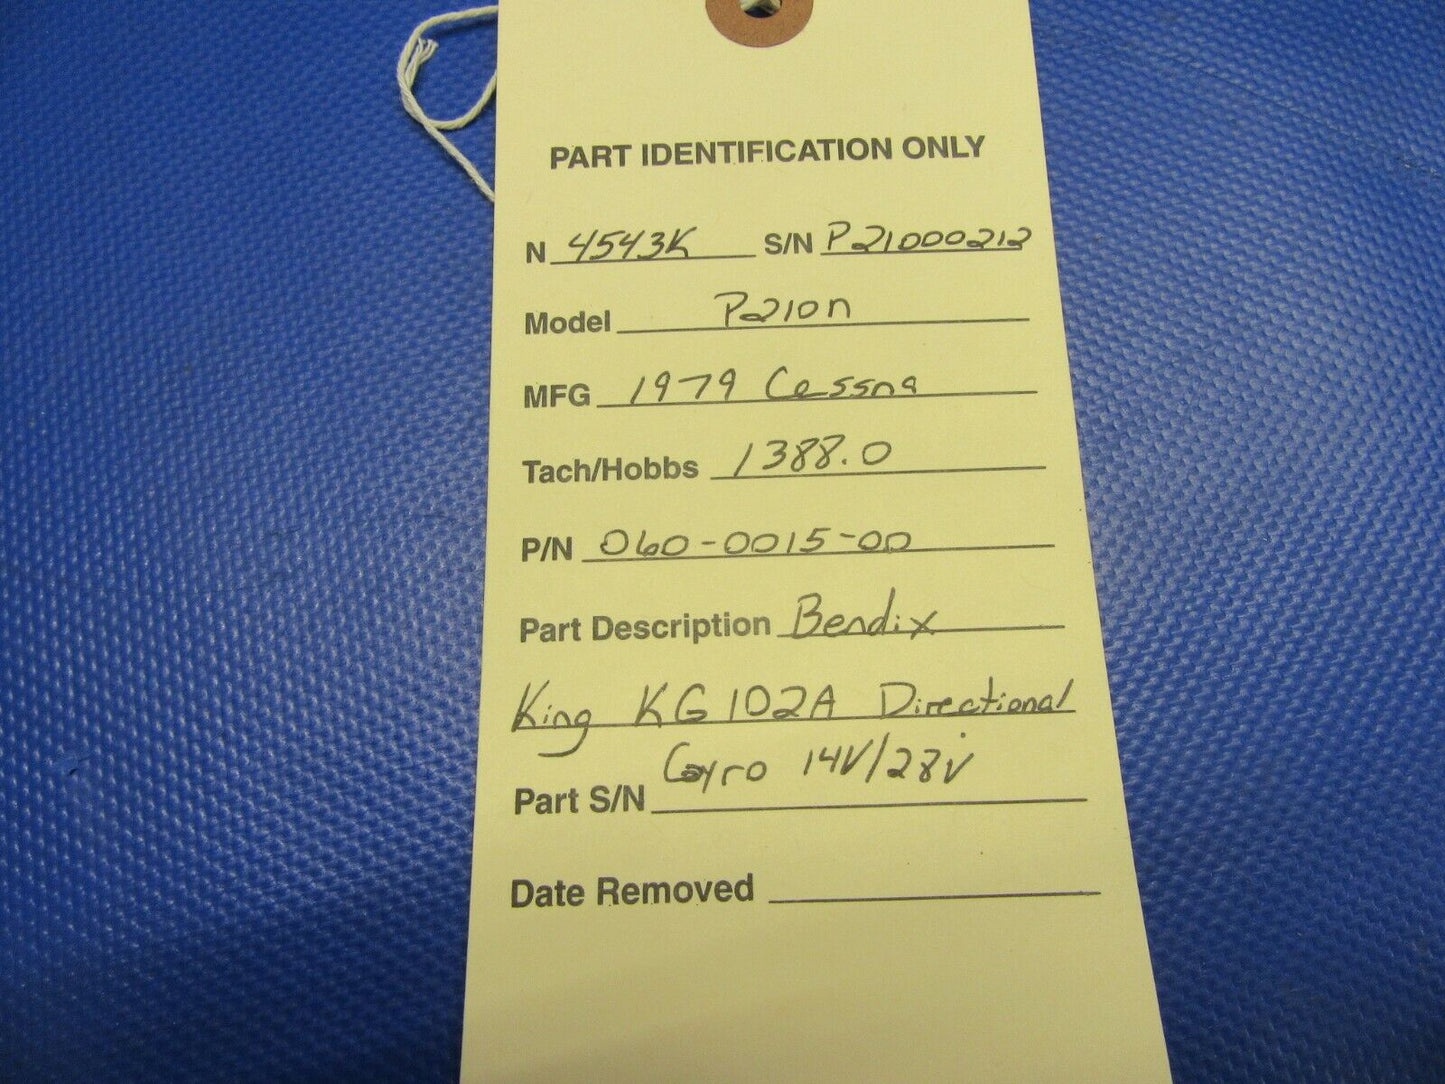 PART IDENTIFICATION ONLY
N 4543K S/N P21000212
Model P210n
MFG 1979 Cessna
Tach/Hobbs 1388.0
P/N 060-0015-00
Part Description Bendix
King KG102A Directional
Gyro 14V/28V
Part S/N
Date Removed